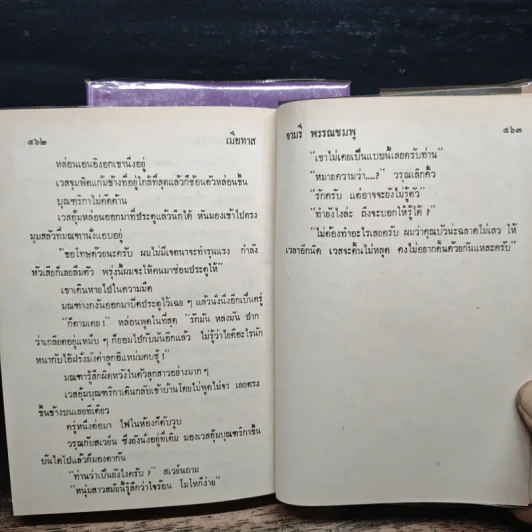 ๕๖๒ เมียทาส
หล่อนเอนอิงอกเขานิ่งอยู่
เวสจุมพิตแก้มข้างที่อยู่ใกล้ที่สุดแล้วก็ช้อนตัวหล่อนขึ้น
บุณฑริกาไม่คัดค้าน
เวสอุ้มหล่อนออกมาที่ประตูแล้วนึกได้ หันมองเข้าไปตรง
มุมสลัวที่มณฑานั่งแอบอยู่
"ขอโทษด้วยนะครับ ผมไม่มีเจตนาจะทำรุนแรง กำลัง
หัวเสียก็เลยลืมตัว พรุ่งนี้ผมจะให้คนมาซ่อมประตูให้"
เขาเดินหายไปในความมืด
มณฑางกงันออกมาปิดประตูไว้เฉย ๆ แล้วนิ่งนึงอีกเป็นครู่
"ก็ตามเคย !" หล่อนพูดในที่สุด "รักมัน หลงมัน ปาก
ว่าเกลียดอยู่แหมบ ๆ ก็ยอมไปกับมันอีกแล้ว ไม่รู้ว่าใยคืออะไรนัก
หนากับไอ้ฝรั่งมังค่าลูกอีแหม่มคบชู้ !"
มณฑารู้สึกผิดหวังในตัวลูกสาวอย่างมาก ๆ
เวสอุ้มบุณฑริกาเดินกลับเข้าบ้านโดยไม่พูดไม่จา เลยตรง
ขึ้นข้างบนเลยทีเดียว
ครู่หนึ่งต่อมา ไฟในห้องก็ดับวูบ
วรุณกับสเวย์น ซึ่งยังนั่งอยู่ที่เดิม มองเวสอุ้มบุณฑริกาขึ้น
บันไดไปแล้วก็มองตากัน
"ท่านว่าเป็นยังไงครับ ?" สเวย์นถาม
"หนุ่มสาวสมัยนี้รู้สึกว่าใจร้อน โมโหก็ง่าย"
จามรี พรรณชมพู ๕๖๓
"เขาไม่เคยเป็นแบบนี้เลยครับท่าน"
"หมายความว่า....?" วรุณเลิกคิ้ว
"รักครับ แต่อาจจะยังไม่รู้ตัว"
"ทำยังไงล่ะ ถึงจะบอกให้รู้ได้ ?"
"ไม่ต้องทำอะไรเลยครับ ผมว่าคุณบัวน่ะฉลาดไม่เลว ให้
เวลาอีกนิด เวสจะดิ้นไม่หลุด คงไม่อยากดิ้นด้วยกันแหละครับ"